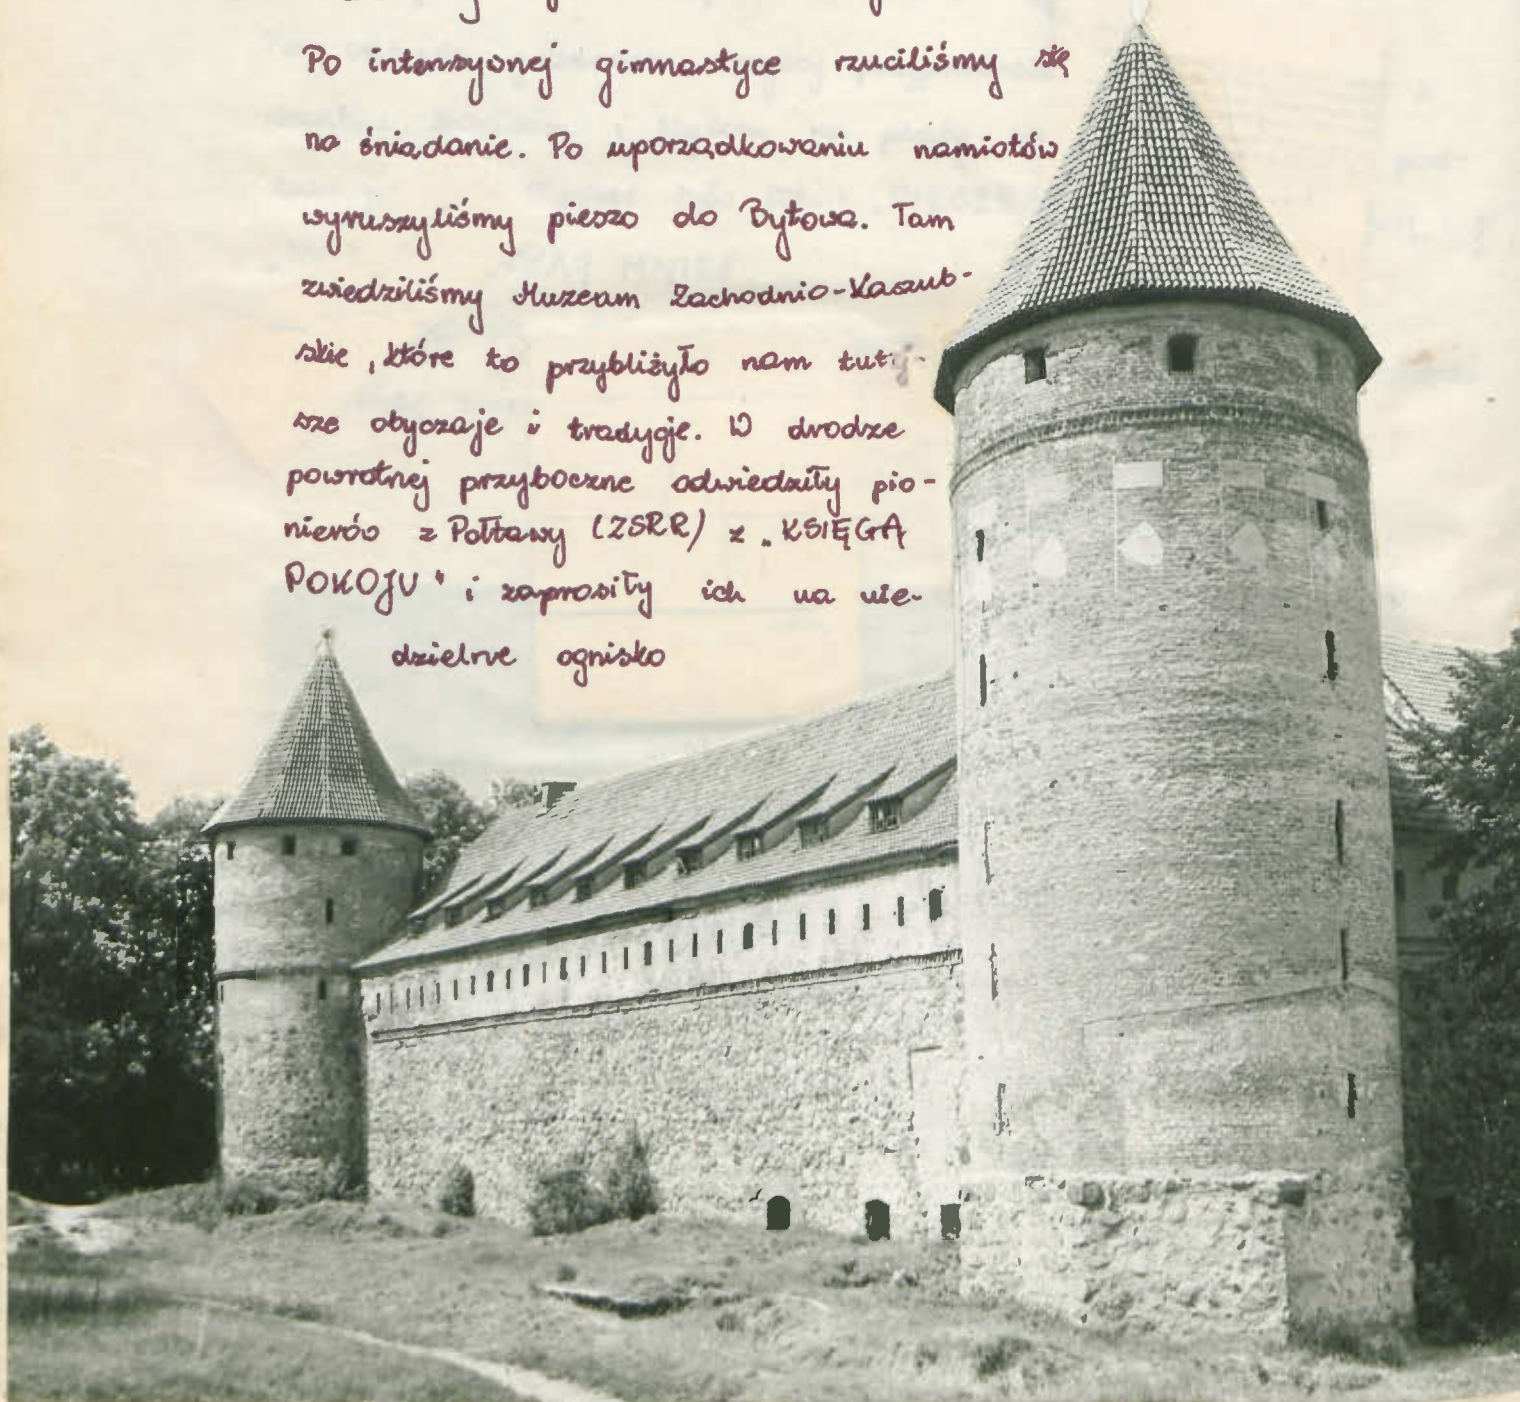 Po intensywnej gimnastyce rzuciliśmy się
na śniadanie. Po uporządkowaniu namiotów
wyruszyliśmy pieszo do Bytowa. Tam
zwiedziliśmy Muzeum Zachodnio-Kaszub-
skie, które to przybliżyło nam tutej-
sze obyczaje i tradycje. W drodze
powrotnej przyboczne odwiedziły pio-
nierów z Połtawy (ZSRR) z „KSIĘGĄ
POKOJU" i zaprosiły ich na nie-
dzielne ognisko